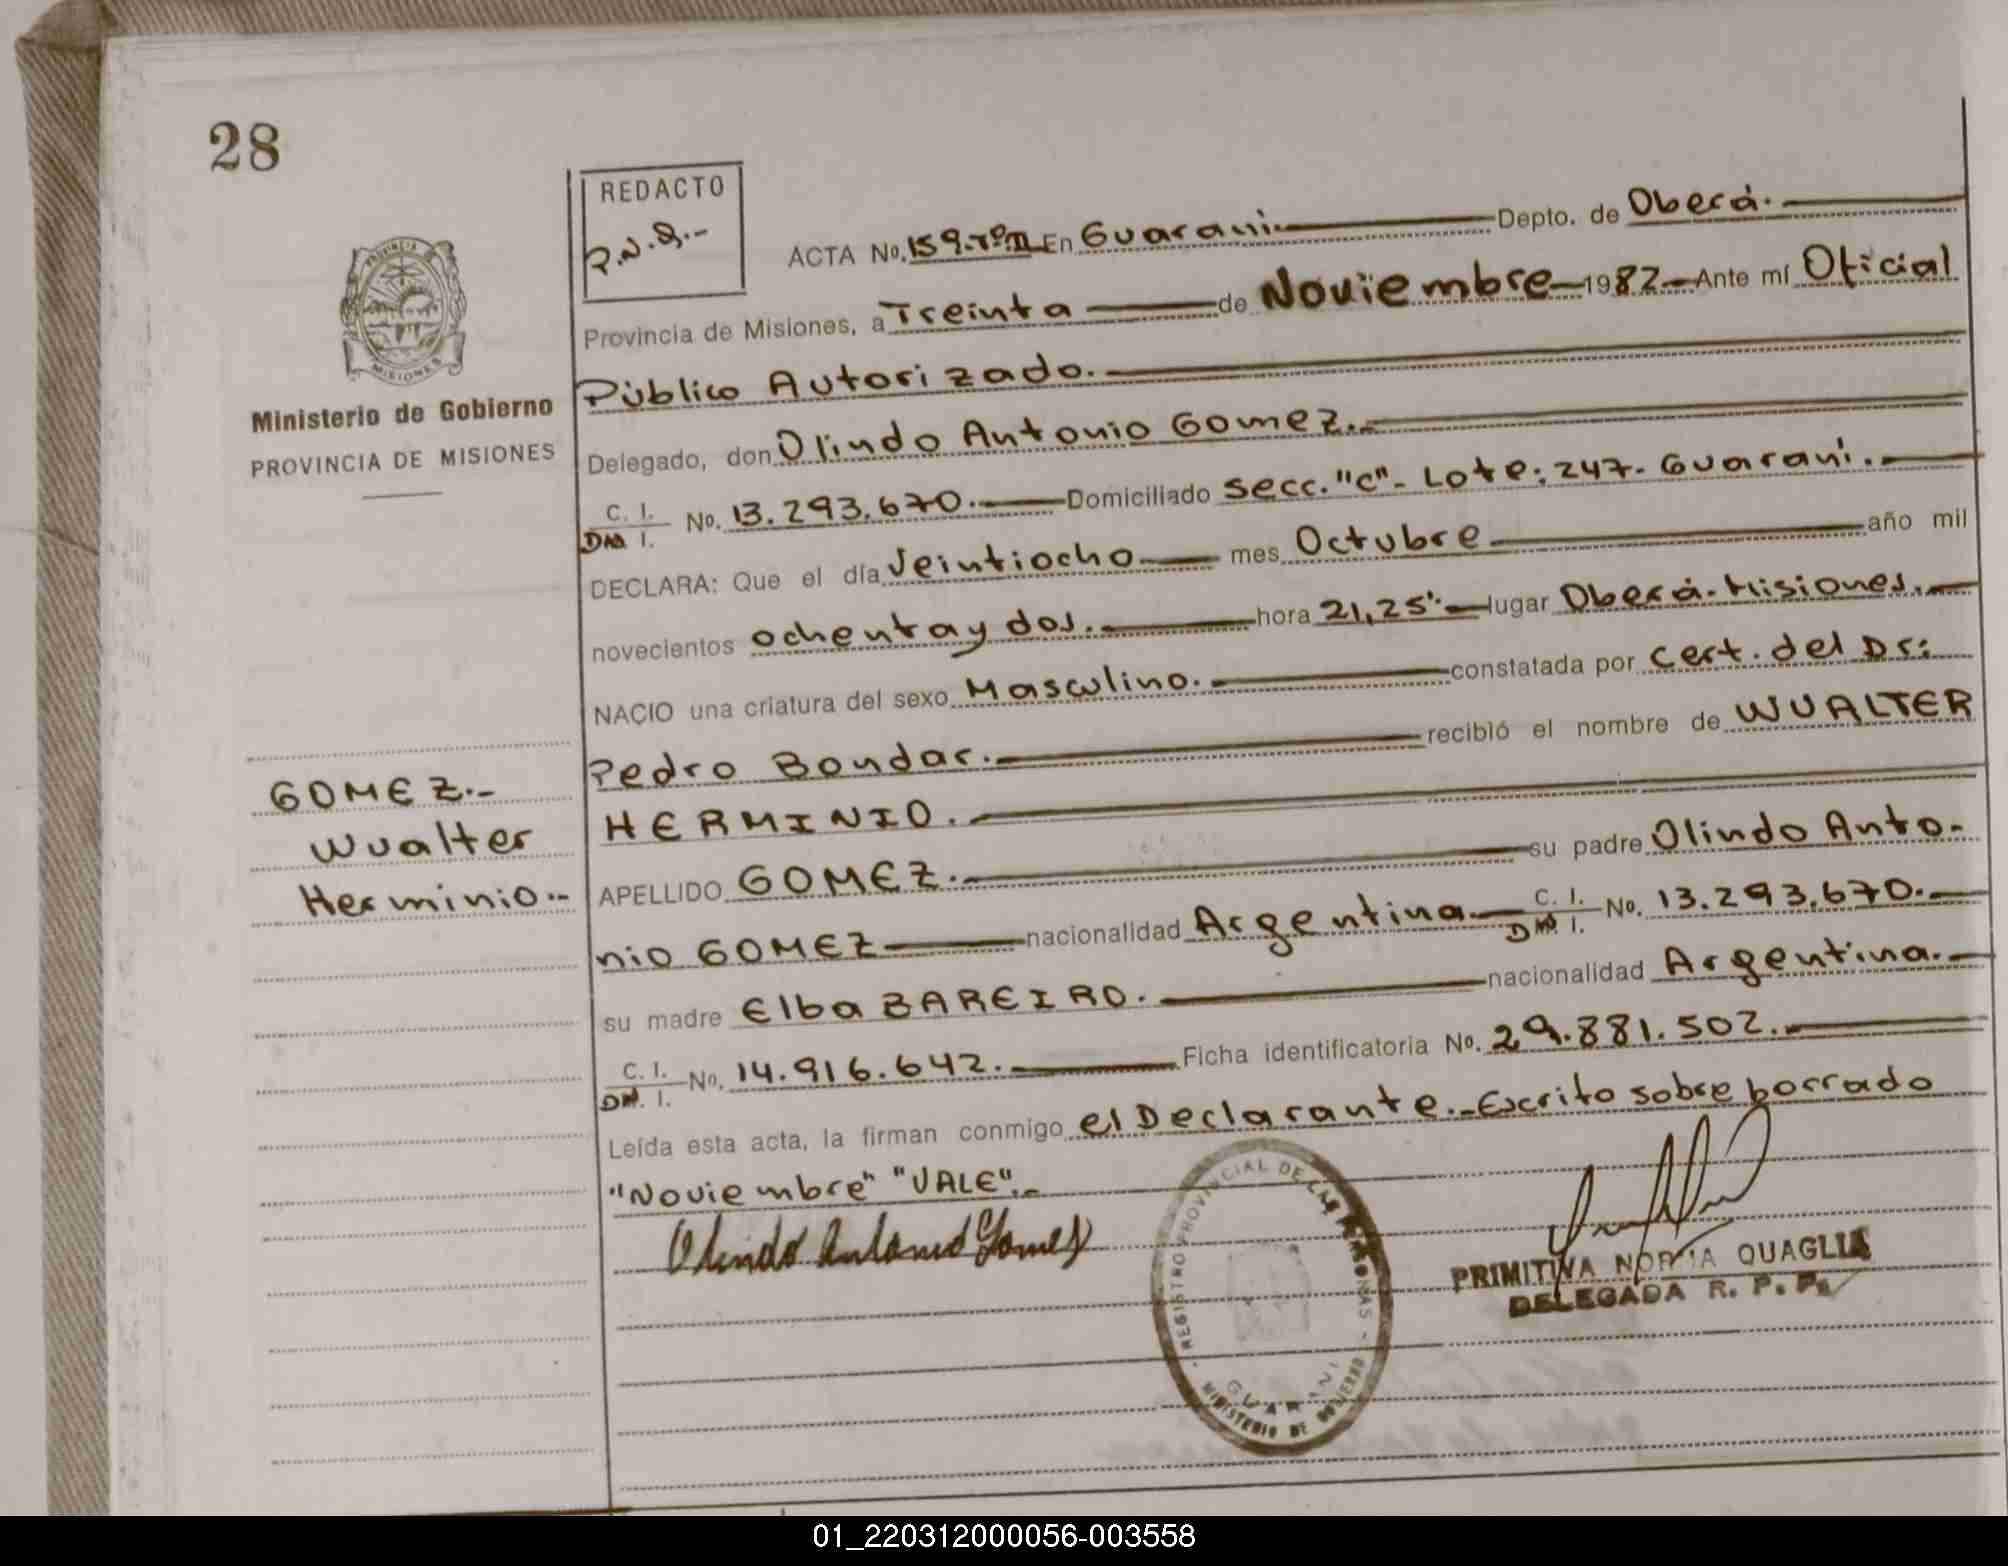 28
REDACTO
P.N.Q.-
PROVINCIA
MISIONES
Ministerio de Gobierno
PROVINCIA DE MISIONES
GOMEZ.-
Wualter
Herminio.-
ACTA No. 159.Tº.II En Guarani. Depto. de Oberá.
Provincia de Misiones, a Treinta de Noviembre 1982 Ante mí Oficial
Público Autorizado.
Delegado, don Olindo Antonio Gomez.
C. I. DN I. No. 13.293.670. Domiciliado secc. "C"- Lote: 247. Guaraní.
DECLARA: Que el día veintiocho mes Octubre año mil
novecientos ochenta y dos. hora 21,25'. lugar Oberá-Misiones.
NACIO una criatura del sexo Masculino. constatada por cert. del Dr:
Pedro Bondar. recibió el nombre de WUALTER
HERMINIO.
APELLIDO GOMEZ. su padre Olindo Anto-
nio GOMEZ nacionalidad Argentina C. I. DN. I. No. 13.293.670.
su madre Elba BAREIRO. nacionalidad Argentina.
C. I. DN. I. No. 14.916.642. Ficha identificatoria No. 29.881.502.
Leída esta acta, la firman conmigo el Declarante.-Escrito sobre borrado
"Noviembre" "VALE".-
Olindo Antonio Gomez
REGISTRO PROVINCIAL DE LAS PERSONAS
GUARANI
MINISTERIO DE GOBIERNO
PRIMITIVA NORMA QUAGLIA
DELEGADA R. P. P.
01_220312000056-003558